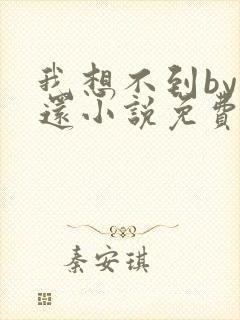 我想不到by
還小說免費
秦安琪